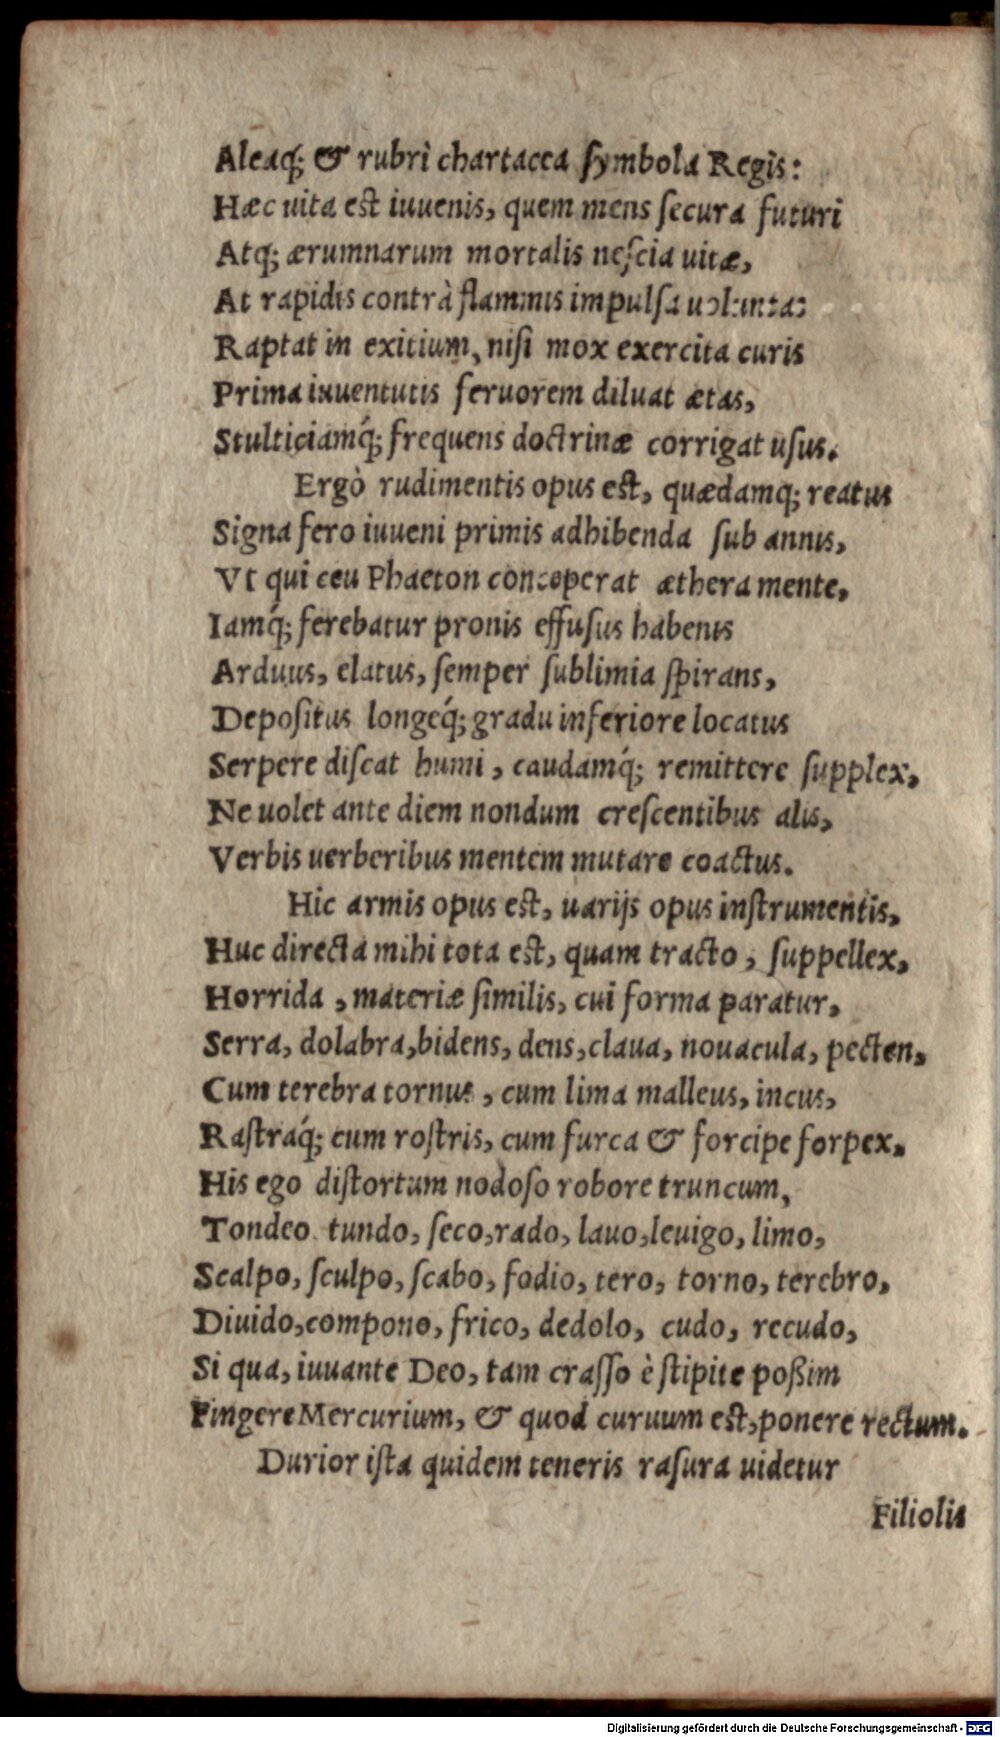 Aleaq́; & rubri chartacea ſymbola Regis:
Hæc uita est iuuenis, quem mens ſecura futuri
Atq; ærumnarum mortalis neſcia uitæ,
At rapidis contrà flammis impulſa uoluntas
Raptat in exitium, niſi mox exercita curis
Prima iuuentutis feruorem diluat ætas,
Stulticiamq́; frequens doctrinæ corrigat uſus.
Ergò rudimentis opus est, quædamq; reatus
Signa fero iuueni primis adhibenda ſub annis,
Vt qui ceu Phaeton conceperat æthera mente,
Iamq́; ferebatur pronis effuſus habenis
Arduus, elatus, ſemper ſublimia ſpirans,
Depoſitus longeq́; gradu inferiore locatus
Serpere diſcat humi, caudamq́; remittere ſupplex,
Ne uolet ante diem nondum creſcentibus alis,
Verbis uerberibus mentem mutare coactus.
Hic armis opus est, uarijs opus inſtrumentis,
Huc directa mihi tota est, quam tracto, ſuppellex,
Horrida, materiæ ſimilis, cui forma paratur,
Serra, dolabra, bidens, dens, claua, nouacula, pecten,
Cum terebra tornus, cum lima malleus, incus,
Raſtraq́; cum roſtris, cum furca & forcipe forpex.
His ego diſtortum nodoſo robore truncum,
Tondeo tundo, ſeco, rado, lauo, leuigo, limo,
Scalpo, ſculpo, ſcabo, fodio, tero, torno, terebro,
Diuido, compono, frico, dedolo, cudo, recudo,
Si qua, iuuante Deo, tam craſſo è ſtipite poßim
Fingere Mercurium, & quod curuum est, ponere rectum.
Durior iſta quidem teneris raſura uidetur
Filiolis
Digitalisierung gefördert durch die Deutsche Forschungsgemeinschaft - DFG